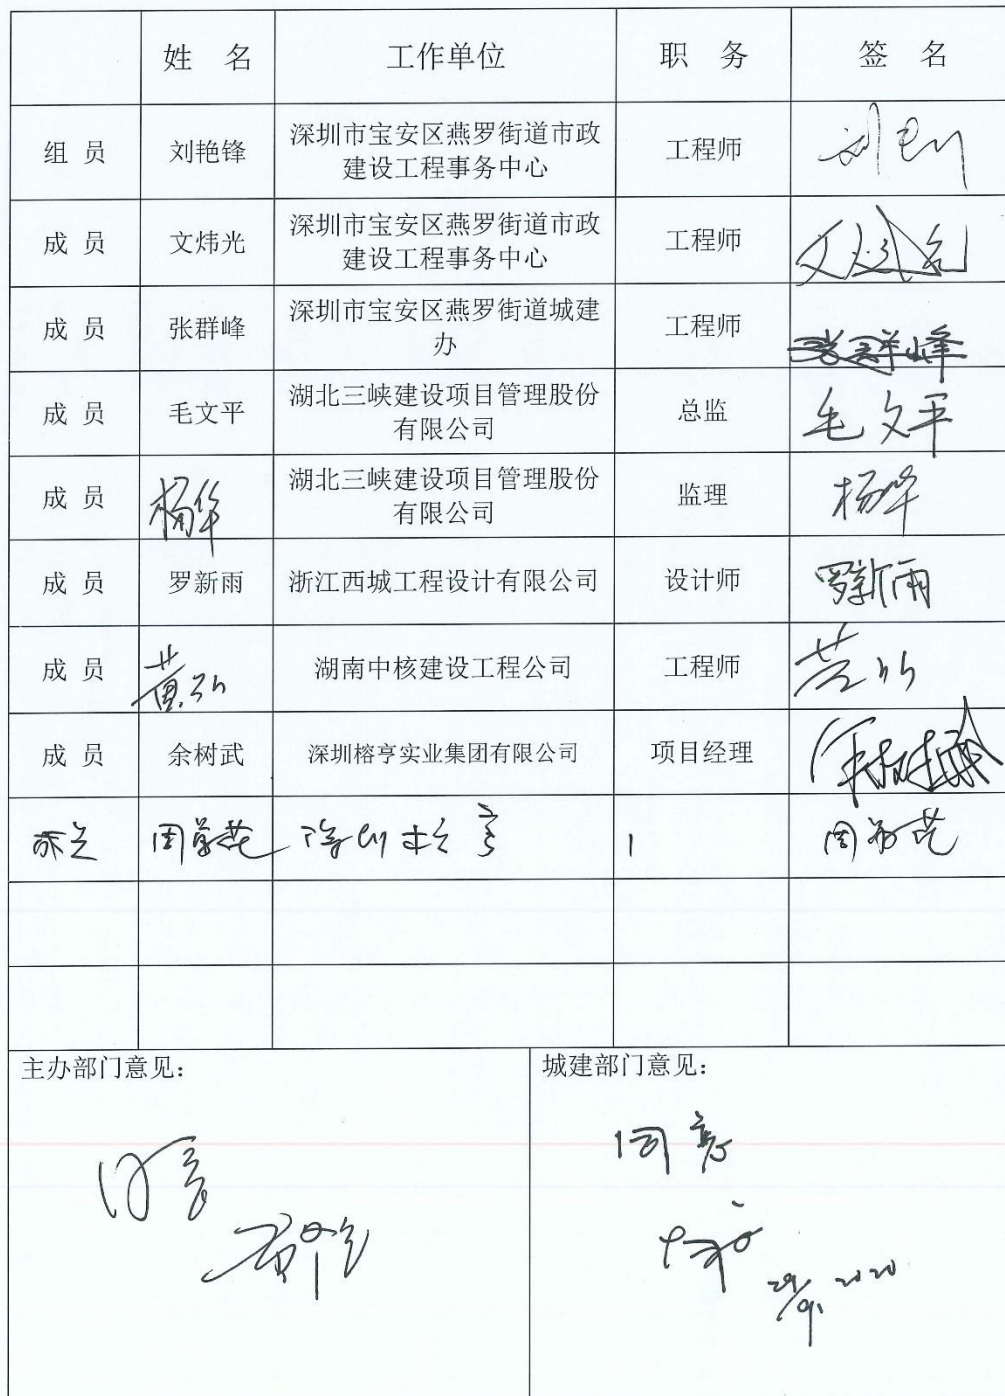 姓 名 工作单位 职 务 签 名
组 员 刘艳锋 深圳市宝安区燕罗街道市政
建设工程事务中心 工程师
成 员 文炜光 深圳市宝安区燕罗街道市政
建设工程事务中心 工程师
成 员 张群峰 深圳市宝安区燕罗街道城建
办 工程师 张群峰
成 员 毛文平 湖北三峡建设项目管理股份
有限公司 总监 毛文平
成 员 杨华 湖北三峡建设项目管理股份
有限公司 监理 杨华
成 员 罗新雨 浙江西城工程设计有限公司 设计师 罗新雨
成 员 湖南中核建设工程公司 工程师
成 员 余树武 深圳榕亨实业集团有限公司 项目经理
主办部门意见： 城建部门意见：
同意 同意
29/9. 2020